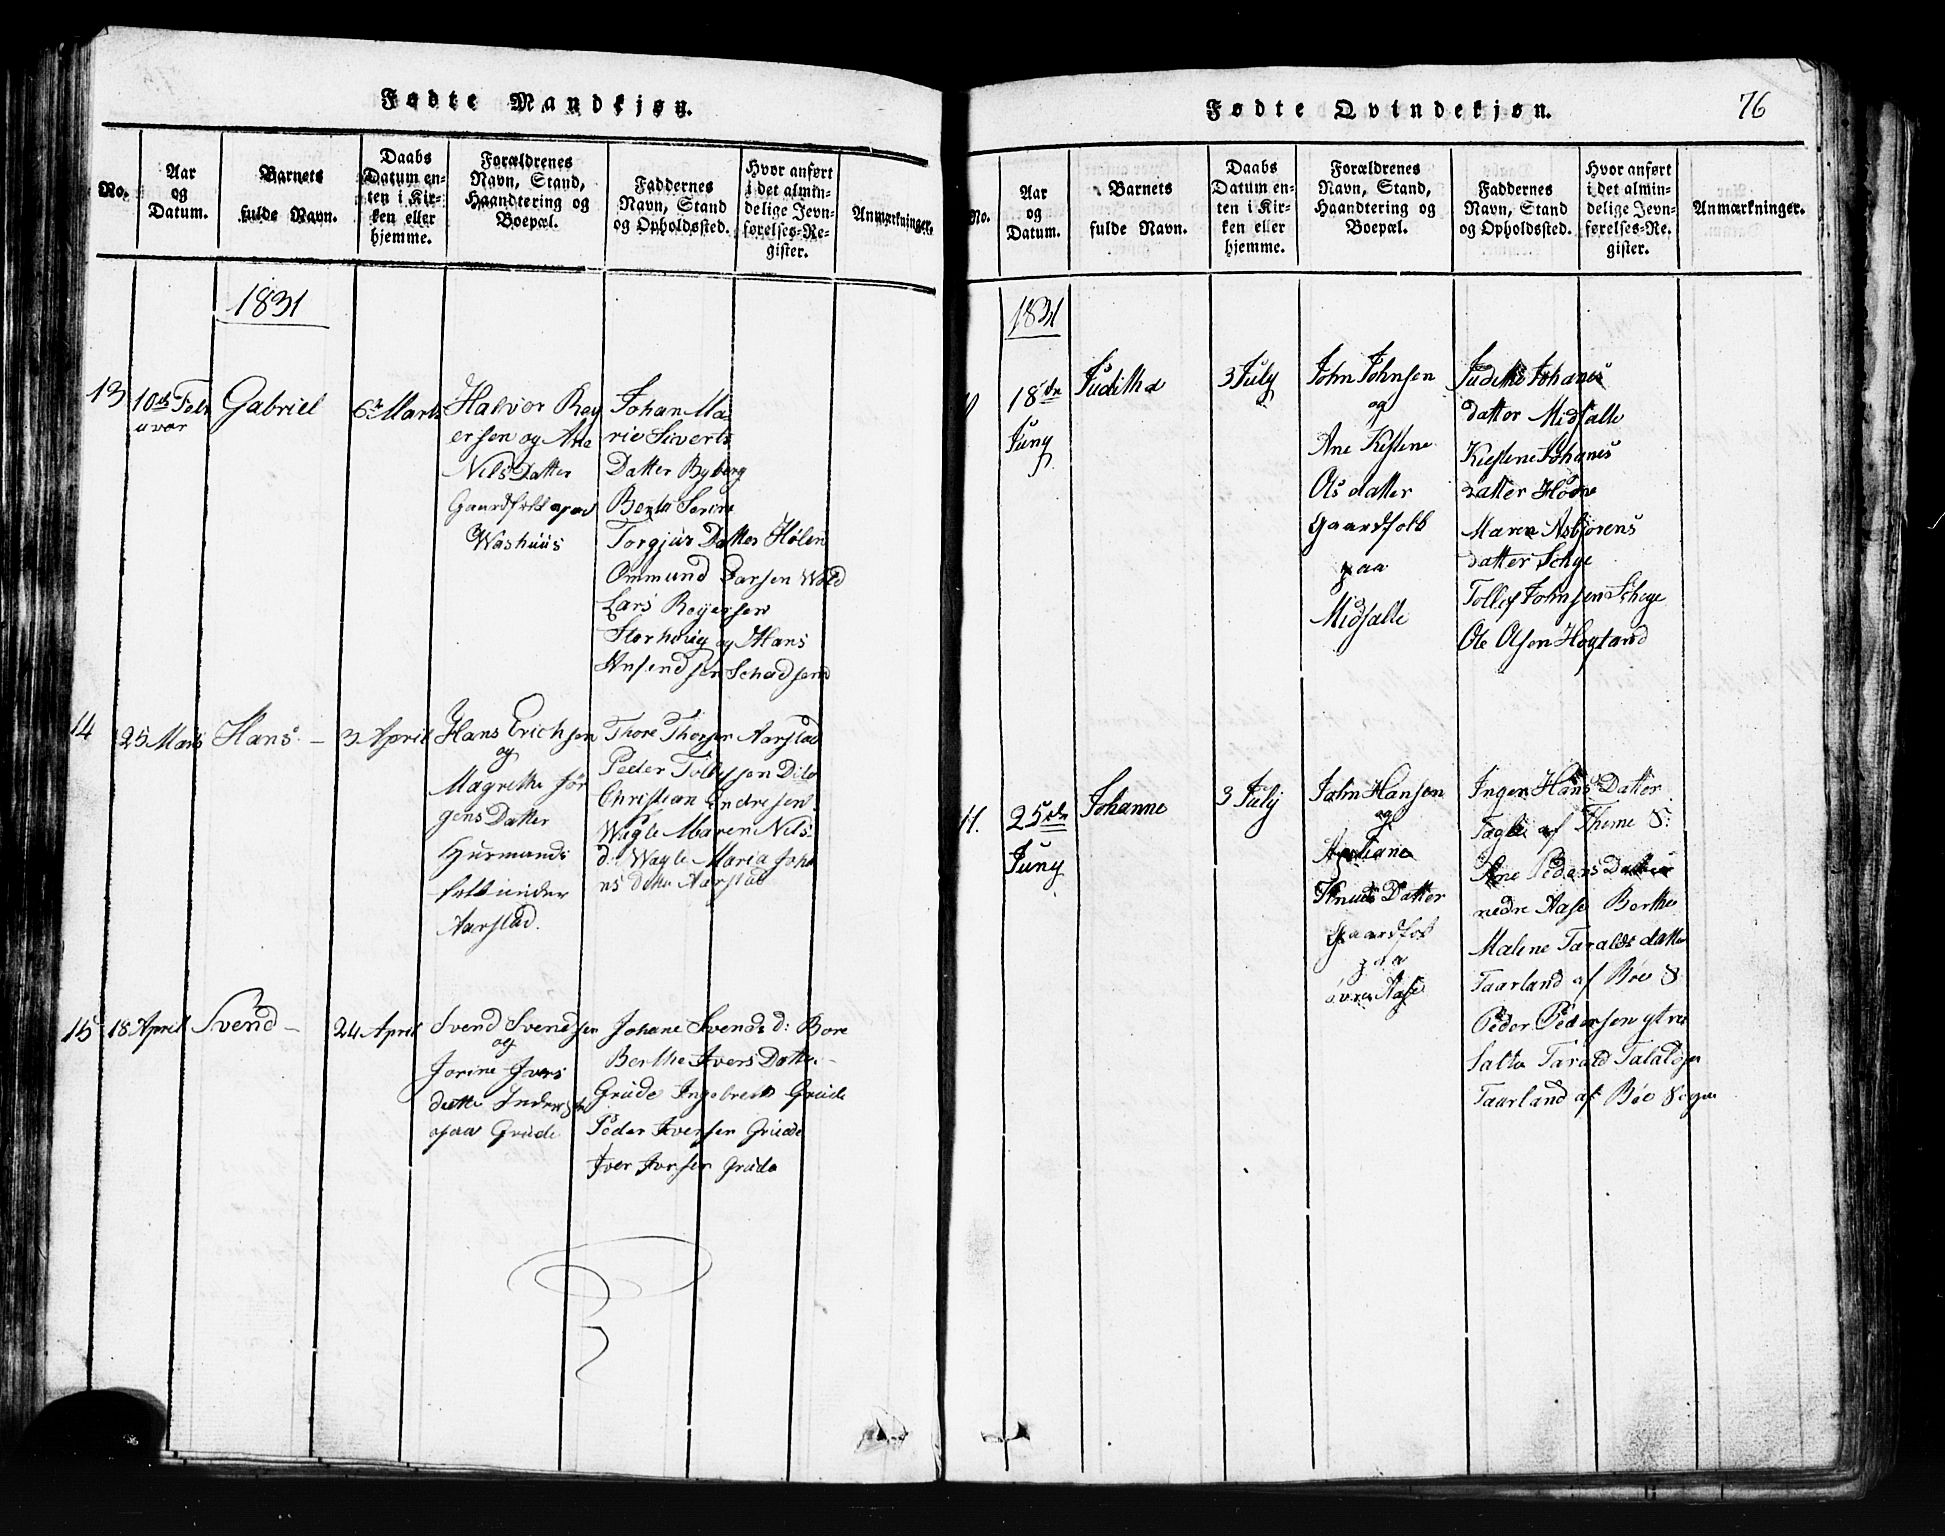 Fødte Mandkjøn.
No.
Aar
og
Datum.
Barnets
fulde Navn.
Daabs
Datum en-
ten i Kir-
ken eller
hjemme.
Forældrenes
Navn, Stand,
Haandtering og
Boepæl.
Faddernes
Navn, Stand
og Opholdssted.
Hvor anført
i det almin-
delige Jevn-
førelses-Re-
gister.
Anmærkninger.
1831
13
10de Febr
uar
Gabriel
6te Marts
Halvor Rey
ersen og Ane
Nils Datter
Gaardfolk paa
Washuus
Johan Ma
rie Siverts
Datter Ryberg
Berte Serine
Torgjus Datter Hølen
Ommund Larsen Wold
Lars Reyersen
Storhoug og Hans
Ansendsen Schadsem
14
25 Marts
Hans. –
3 April
Hans Erichsen
og
Magrethe Jör
gens Datter
Husmands
folk under
Aarstad.
Thore Thorsen Aarstad
Peder Tollefsen Dito
Christian Endresen
Wagle Maren Nils
d: Wagle Maria Joha
ns datter Aarstad
15
18 April
Svend –
24 April
Svend Svendsen
og
Jorine Ivers
datter Inderster
paa Grude
Johane Svends d: Bore
Berthe Ivers Datter
Grude Ingebreth Grude
Peder Iversen Grude
Iver Iversen Grude
Fødte Qvindekjøn.
76
No.
Aar
og
Datum.
Barnets
fulde Navn.
Daabs
Datum en-
ten i Kir-
ken eller
hjemme.
Forældrenes
Navn, Stand,
Haandtering og
Boepæl.
Faddernes
Navn, Stand
og Opholdssted.
Hvor anført
i det almin-
delige Jevn-
førelses-Re-
gister.
Anmærkninger.
1831
18de
Juny
Juditha
3 July
John Johnsen
og
Ane Kistine
Ols datter
Gaardfolk
paa
Midsalle
Judithe Johanes
datter Midsalle
Kiestene Johanes
datter Hodne
Maren Asbjorens
datter Schye
Tollef Johnsen Schye
Ole Olsen Hogland
11.
25de
Juny
Johanne
3 July
John Hansen
og
Knuds Datter
Gaardfolk
paa
øvre Aase
Inger Hans Datter
af Thime S:
Ane Peders Datter
nedre Aase Berthe
Malene Taralds datter
Taarland af Bøe S
Peder Pedersen ytre
Salte Tarald Talaldsen
Taarland af Bøe Sogn